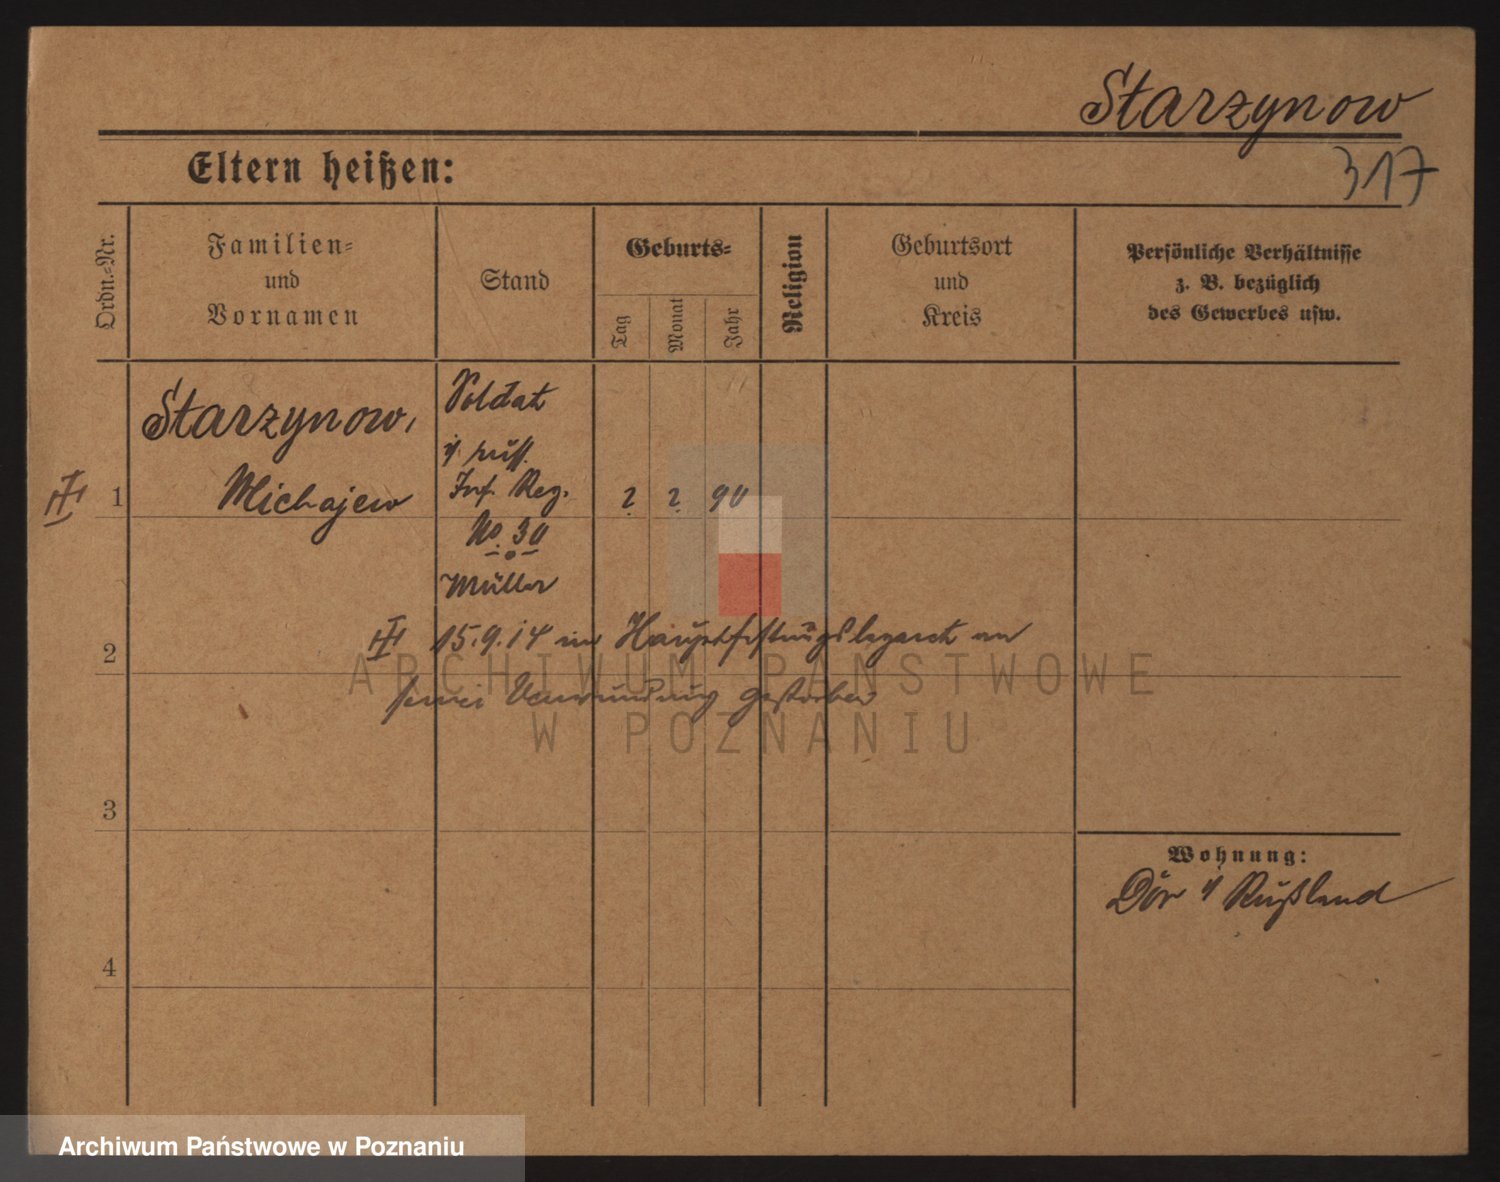 Starzynow
317
Eltern heißen:
Ordn.-Nr.
Familien-
und
Vornamen
Stand
Geburts-
Tag
Monat
Jahr
Religion
Geburtsort
und
Kreis
Persönliche Verhältnisse
z. B. bezüglich
des Gewerbes usw.
Starzynow,
Michajew
Soldat
i/ russ.
Inf. Reg.
No. 30
Müller
1
? ? 90
2
15.9.14 im Hauptfestungslazarett an
seiner Verwundung gestorben
3
4
Wohnung:
i/ Rußland
ARCHIWUM PAŃSTWOWE
W POZNANIU
Archiwum Państwowe w Poznaniu